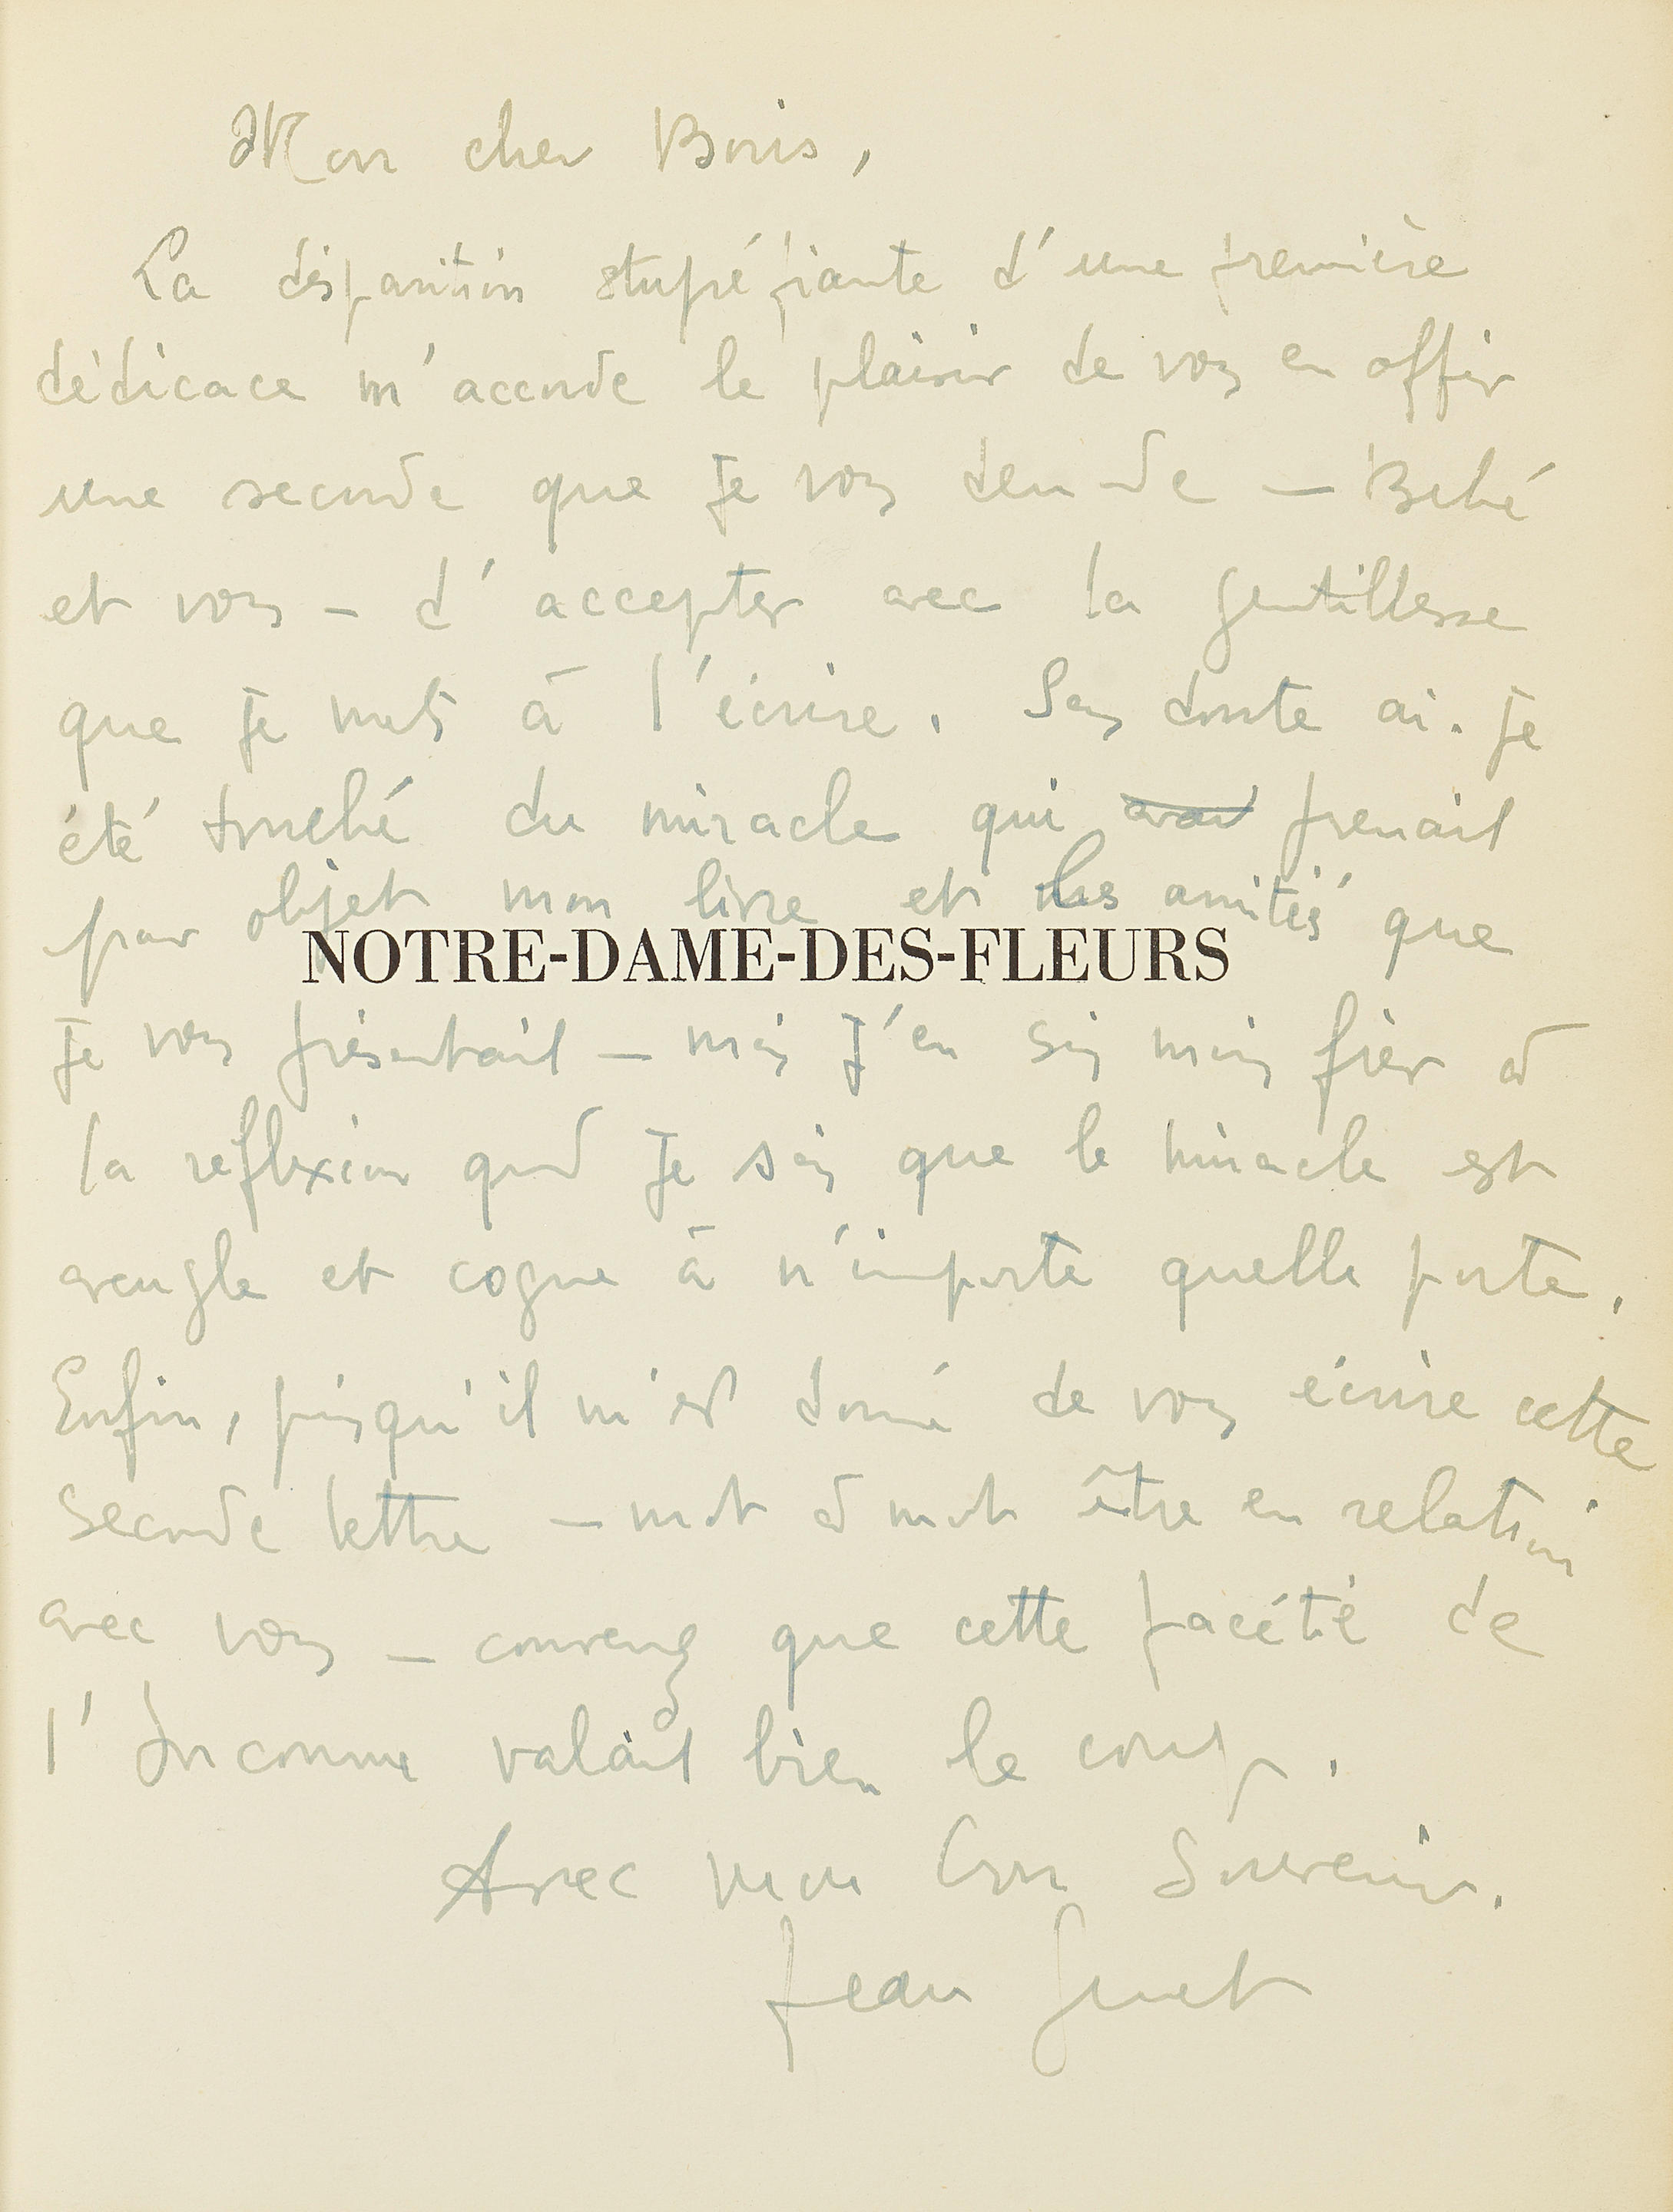 Mon cher Boris,
La disparition stupéfiante d'une première
dédicace m'accorde le plaisir de vous en offrir
une seconde que je vous demande — Bébé
et vous — d'accepter avec la gentillesse
que je mets à l'écrire. Sans doute ai-je
été touché du miracle qui avait prenait
pour objet mon livre et les amitiés que
NOTRE-DAME-DES-FLEURS
je vous présentait — mais j'en suis moins fier à
la réflexion quand je sais que le miracle est
aveugle et cogne à n'importe quelle porte.
Enfin, puisqu'il m'est donné de vous écrire cette
seconde lettre — mot à mot être en relation
avec vous — convenez que cette facétie de
l'Inconnu valait bien le coup.
Avec mon bon souvenir.
Jean Genet